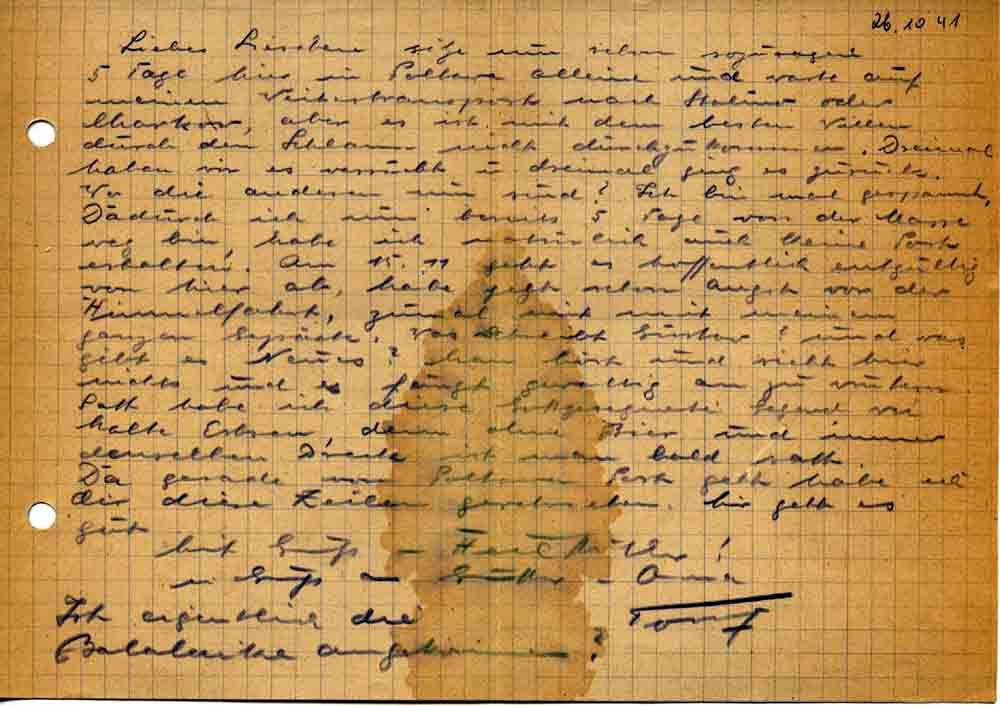 26.10.41
Liebes Lieschen sitze nun schon sozusagen
5 Tage hier in Poltava alleine und warte auf
meinen Weitertransport nach Stalino oder
Charkow, aber es ist mit dem besten Willen
durch den Schlamm nicht durchzukommen. Dreimal
haben wir es versucht u dreimal ging es zurück.
Wo die anderen nun sind? Ich bin mal gespannt,
Dadurch ich nun bereits 5 Tage von der Masse
weg bin, habe ich natürlich auch keine Post
erhalten. Am 15.11 geht es hoffentlich entgültig
von hier ab, habe jetzt schon Angst vor der
Himmelfahrt, zumal mit meinem
ganzen Gepäck. Was schreibt Gustav? und was
gibt es Neues? Man hört und sieht hier
nichts und es fängt gewaltig an zu
Satt habe ich diese Gottgesegnete Gegend wie
kalte Erbsen, denn ohne Bier und immer
denselben Dreck ist man bald satt
Da gerade von Poltawa Post geht habe ich
dir diese Zeilen geschrieben. Mir geht es
gut
Mit Gruß
u Gruß an Mutter u Oma
Ist eigentlich die
Balaleika angekommen?